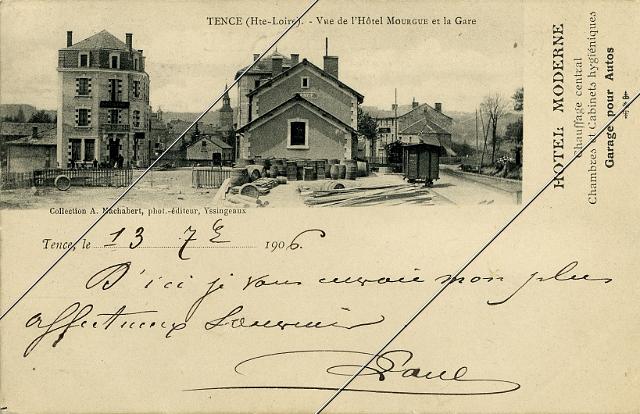 TENCE (Hte-Loire). - Vue de l'Hôtel MOURGUE et la Gare
HOTEL MODERNE
Chauffage central
Chambres et Cabinets hygiéniques
Garage pour Autos
Collection A. Machabert, phot.-éditeur, Yssingeaux
Tence, le 13 7e 1906.
D'ici je vous envoie mon plus
affectueux souvenir
Paul